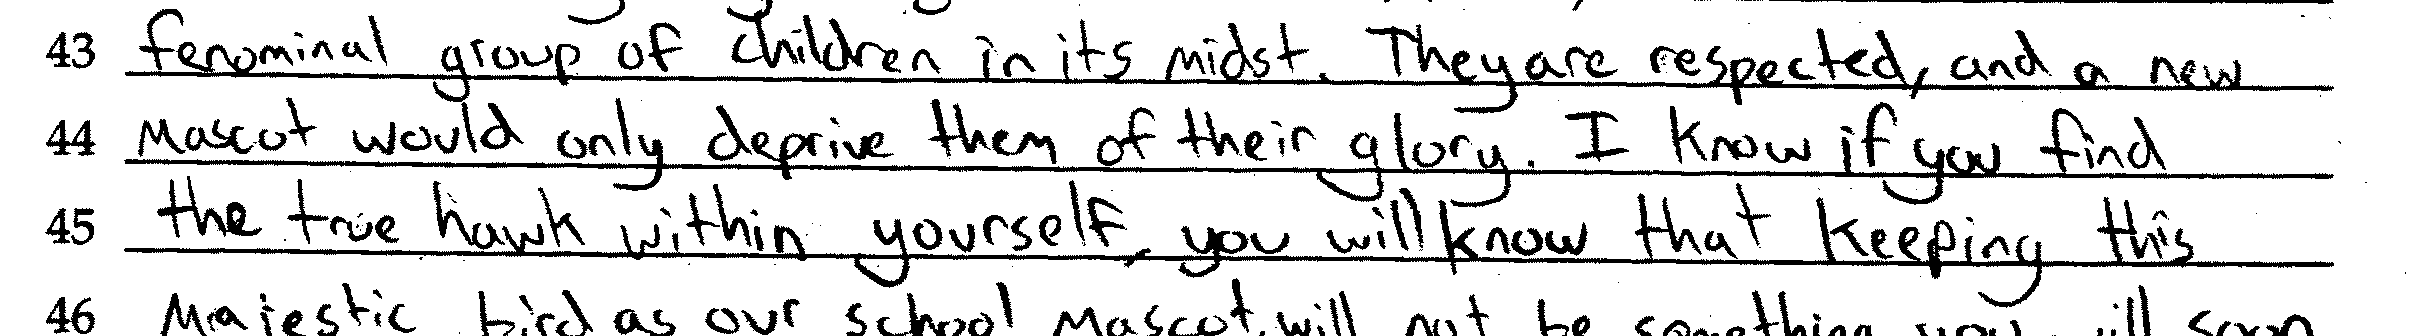 43 fenominal group of children in its midst. They are respected, and a new
44 mascot would only deprive them of their glory. I know if you find
45 the true hawk within yourself, you will know that keeping this
46 majestic bird as our school mascot will not be something you will soon